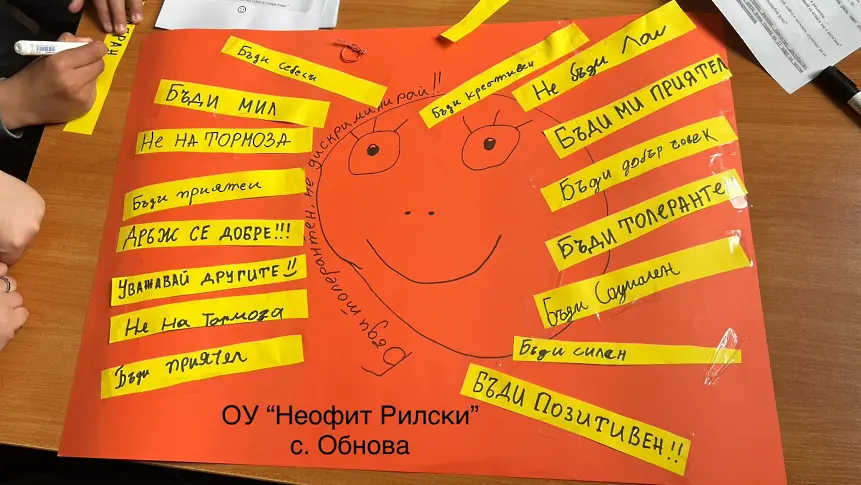 Бъди себеси
БЪДИ МИЛ
Не НА ТОРМОЗА
Бъди приятел
ДРЪЖ СЕ ДОБРЕ!!!
УВАЖАВАЙ ДРУГИТЕ!!
Не На Тормоза
Бъди ПРИЯТЕЛ
Бъди толерантен, не дискриминирай!!
Бъди креативен
Не бъди Лош
БЪДИ МИ ПРИЯТЕЛ
Бъди добър човек
БЪДИ ТОЛЕРАНТЕ
Бъди Социален
Бъди силан
БЪДИ ПОЗИТИВЕН!!
ОУ “Неофит Рилски”
с. Обнова